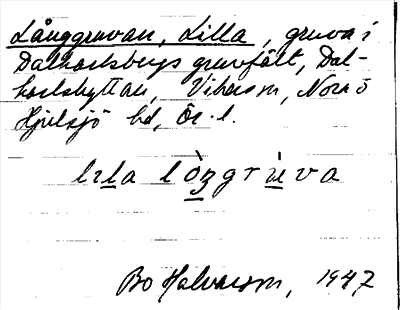 Långgruvan, Lilla, gruva i
Dalkarlsbergs gruvfält, Dal-
karlshyttan, Vikersm, Nora o
Hjulsjö bd, Ör. l.
lɩla lòŋgrùva
Bo Halvarson, 1947